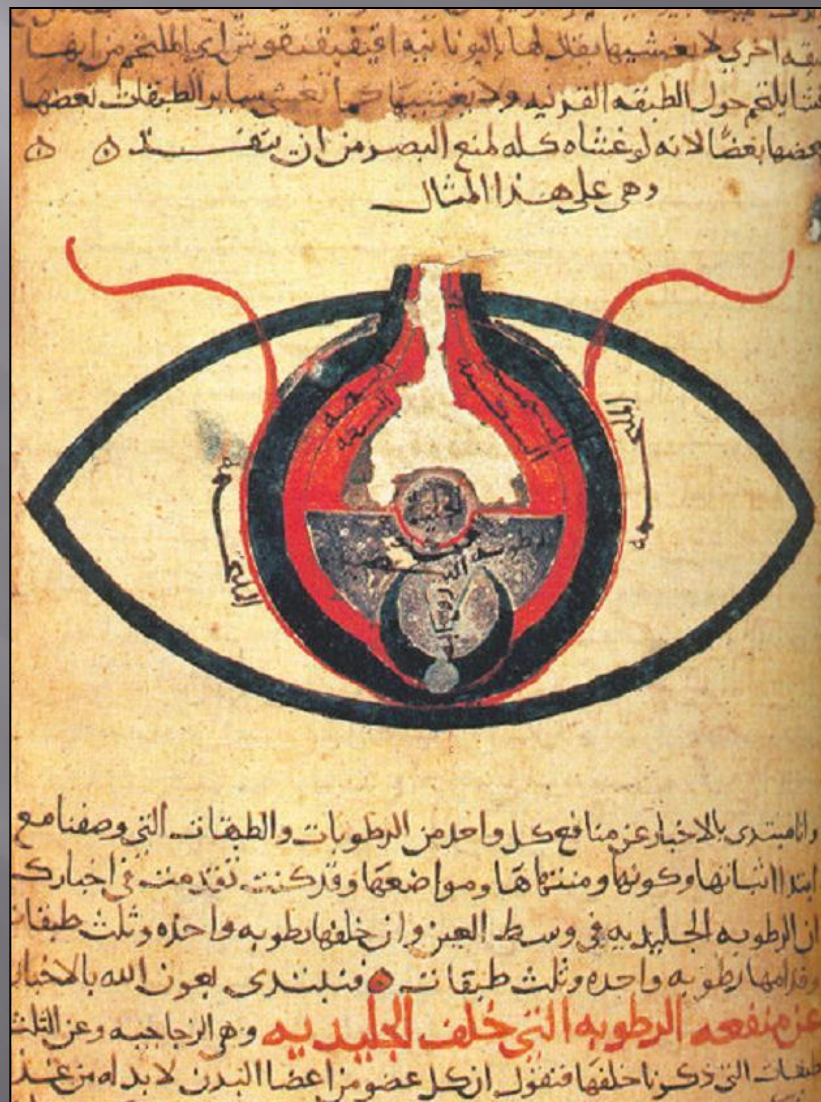 اخري لا يغشيها يقال لها باليونانيه اي الملتحم من انها
غشا يلتحم حول الطبقه القرنيه ولا يغشيها كما يغشي ساير الطبقات بعضها
بعضها بعضًا لانه لو غشاه كله لمنع البصر من ان ينفد
وهي على هذا المثال
الملتحمه
الجليديه
الرطوبه البيضيه
وانا مبتدي بالاخبار عن منافع كل واحد من الرطوبات والطبقات التي وصفنا مع
ابتدا اثباتها وكونها ومنتهاها ومواضعها وقد كنت تقدمت في اخبارك
ان الرطوبه الجليديه في وسط العين وان خلفها رطوبه واحده وثلث طبقات
وقدامها رطوبه واحده وثلث طبقات فنبتدي بعون الله بالاخبار
عن منفعه الرطوبه التي خلف الجليديه وهي الزجاجيه وعن الثلث
طبقات التي ذكرنا خلفها فنقول ان كل عضو من اعضا البدن لا بد له من غذا